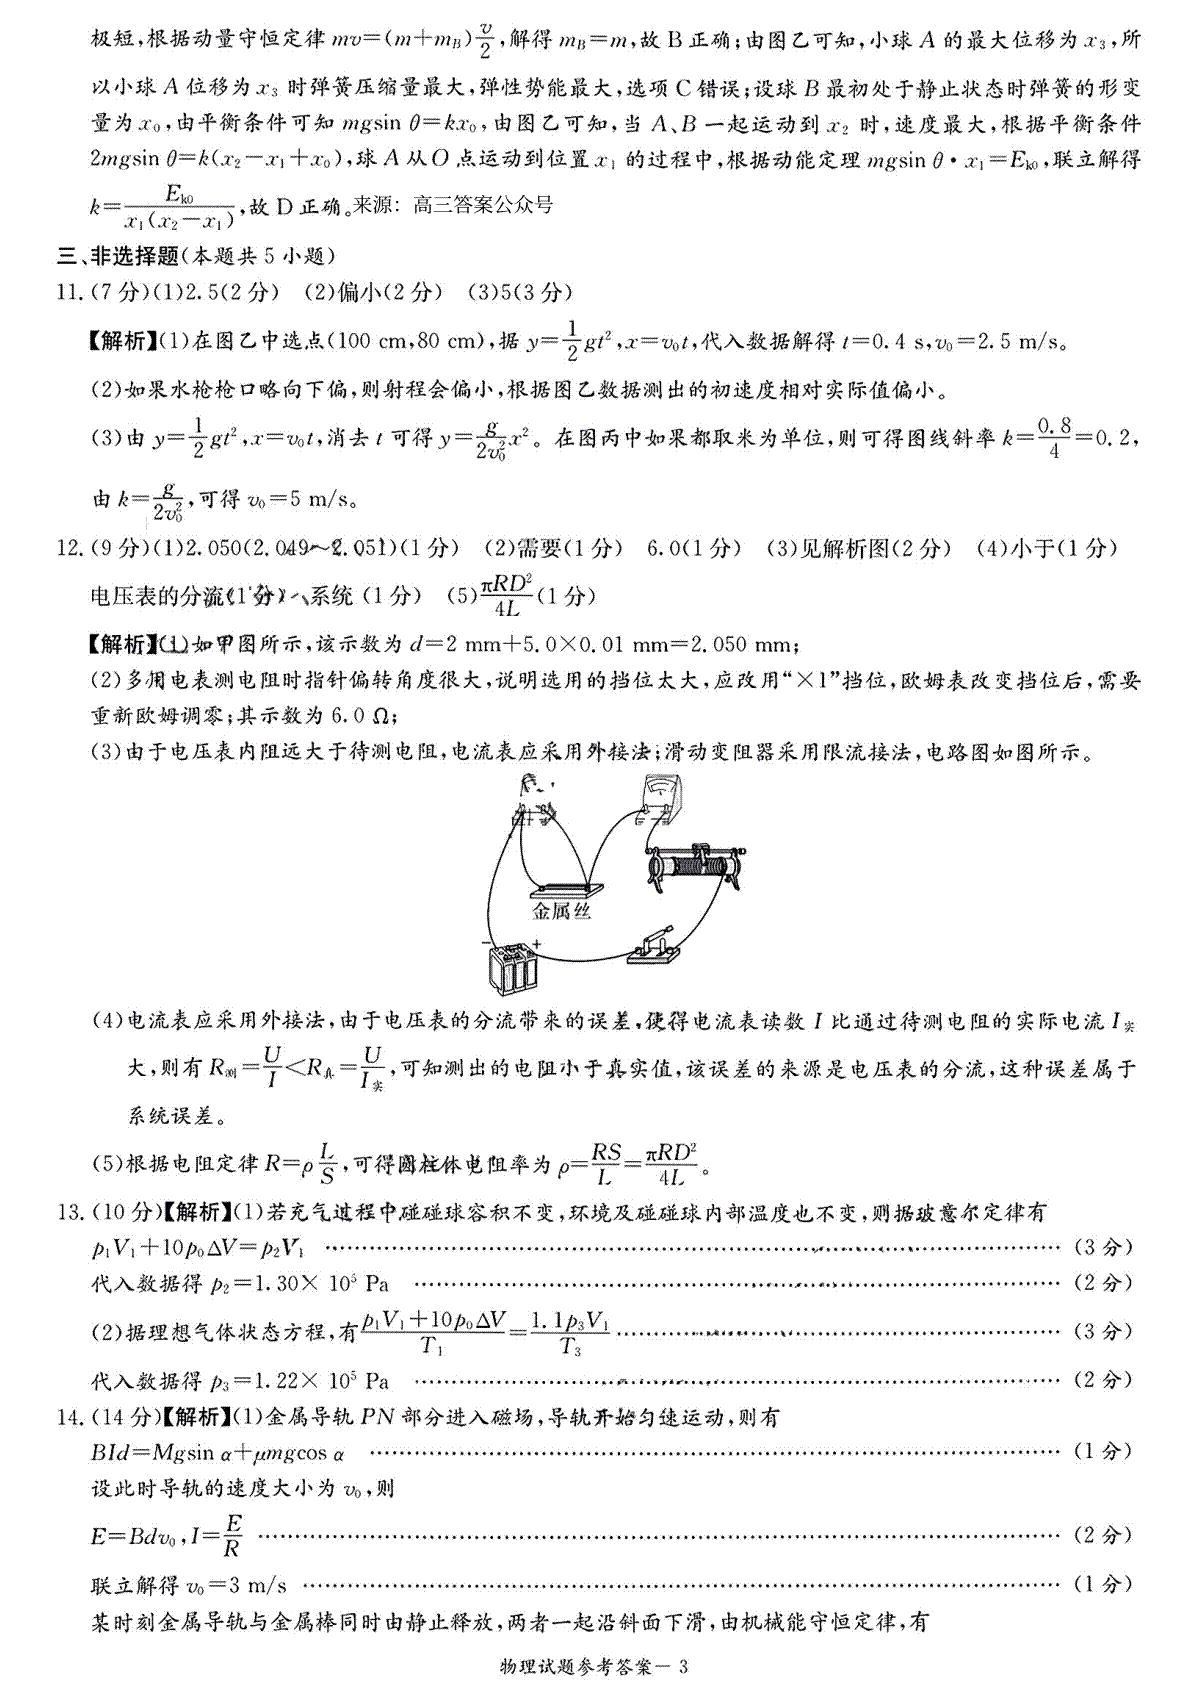 极短,根据动量守恒定律 mv=(m+mB)v/2,解得 mB=m,故 B 正确;由图乙可知,小球 A 的最大位移为 x3,所
以小球 A 位移为 x3 时弹簧压缩量最大,弹性势能最大,选项 C 错误;设球 B 最初处于静止状态时弹簧的形变
量为 x0,由平衡条件可知 mgsin θ=kx0,由图乙可知,当 A、B 一起运动到 x2 时,速度最大,根据平衡条件
2mgsin θ=k(x2-x1+x0),球 A 从O 点运动到位置 x1 的过程中,根据动能定理 mgsin θ·x1=Ek0,联立解得
k=Ek0/x1(x2-x1),故 D 正确。来源：高三答案公众号
三、非选择题(本题共 5 小题)
11.(7 分)(1)2.5(2 分) (2)偏小(2 分) (3)5(3 分)
【解析】(1)在图乙中选点(100 cm,80 cm),据 y=1/2gt²,x=v0t,代入数据解得 t=0.4 s,v0=2.5 m/s。
(2)如果水枪枪口略向下偏,则射程会偏小,根据图乙数据测出的初速度相对实际值偏小。
(3)由 y=1/2gt²,x=v0t,消去 t 可得 y=g/2v0²x²。在图丙中如果都取米为单位,则可得图线斜率 k=0.8/4=0.2,
由 k=g/2v0²,可得 v0=5 m/s。
12.(9 分)(1)2.050(2.049~2.051)(1 分) (2)需要(1 分) 6.0(1 分) (3)见解析图(2 分) (4)小于(1 分)
电压表的分流(1 分) 系统 (1 分) (5)πRD²/4L(1 分)
【解析】(1)如甲图所示,该示数为 d=2 mm+5.0×0.01 mm=2.050 mm;
(2)多用电表测电阻时指针偏转角度很大,说明选用的挡位太大,应改用“×1”挡位,欧姆表改变挡位后,需要
重新欧姆调零;其示数为 6.0 Ω;
(3)由于电压表内阻远大于待测电阻,电流表应采用外接法;滑动变阻器采用限流接法,电路图如图所示。
金属丝
- +
(4)电流表应采用外接法,由于电压表的分流带来的误差,使得电流表读数 I 比通过待测电阻的实际电流 I实
大,则有 R测=U/I<R真=U/I实,可知测出的电阻小于真实值,该误差的来源是电压表的分流,这种误差属于
系统误差。
(5)根据电阻定律 R=ρL/S,可得圆柱体电阻率为 ρ=RS/L=πRD²/4L。
13.(10 分)【解析】(1)若充气过程中碰碰球容积不变,环境及碰碰球内部温度也不变,则据玻意尔定律有
p1V1+10p0ΔV=p2V1 ……………………(3 分)
代入数据得 p2=1.30×10⁵ Pa ……………………(2 分)
(2)据理想气体状态方程,有p1V1+10p0ΔV/T1=1.1p3V1/T3……………………(3 分)
代入数据得 p3=1.22×10⁵ Pa ……………………(2 分)
14.(14 分)【解析】(1)金属导轨 PN 部分进入磁场,导轨开始匀速运动,则有
BId=Mgsin α+μmgcos α ……………………(1 分)
设此时导轨的速度大小为 v0,则
E=Bdv0,I=E/R ……………………(2 分)
联立解得 v0=3 m/s ……………………(1 分)
某时刻金属导轨与金属棒同时由静止释放,两者一起沿斜面下滑,由机械能守恒定律,有
物理试题参考答案－3